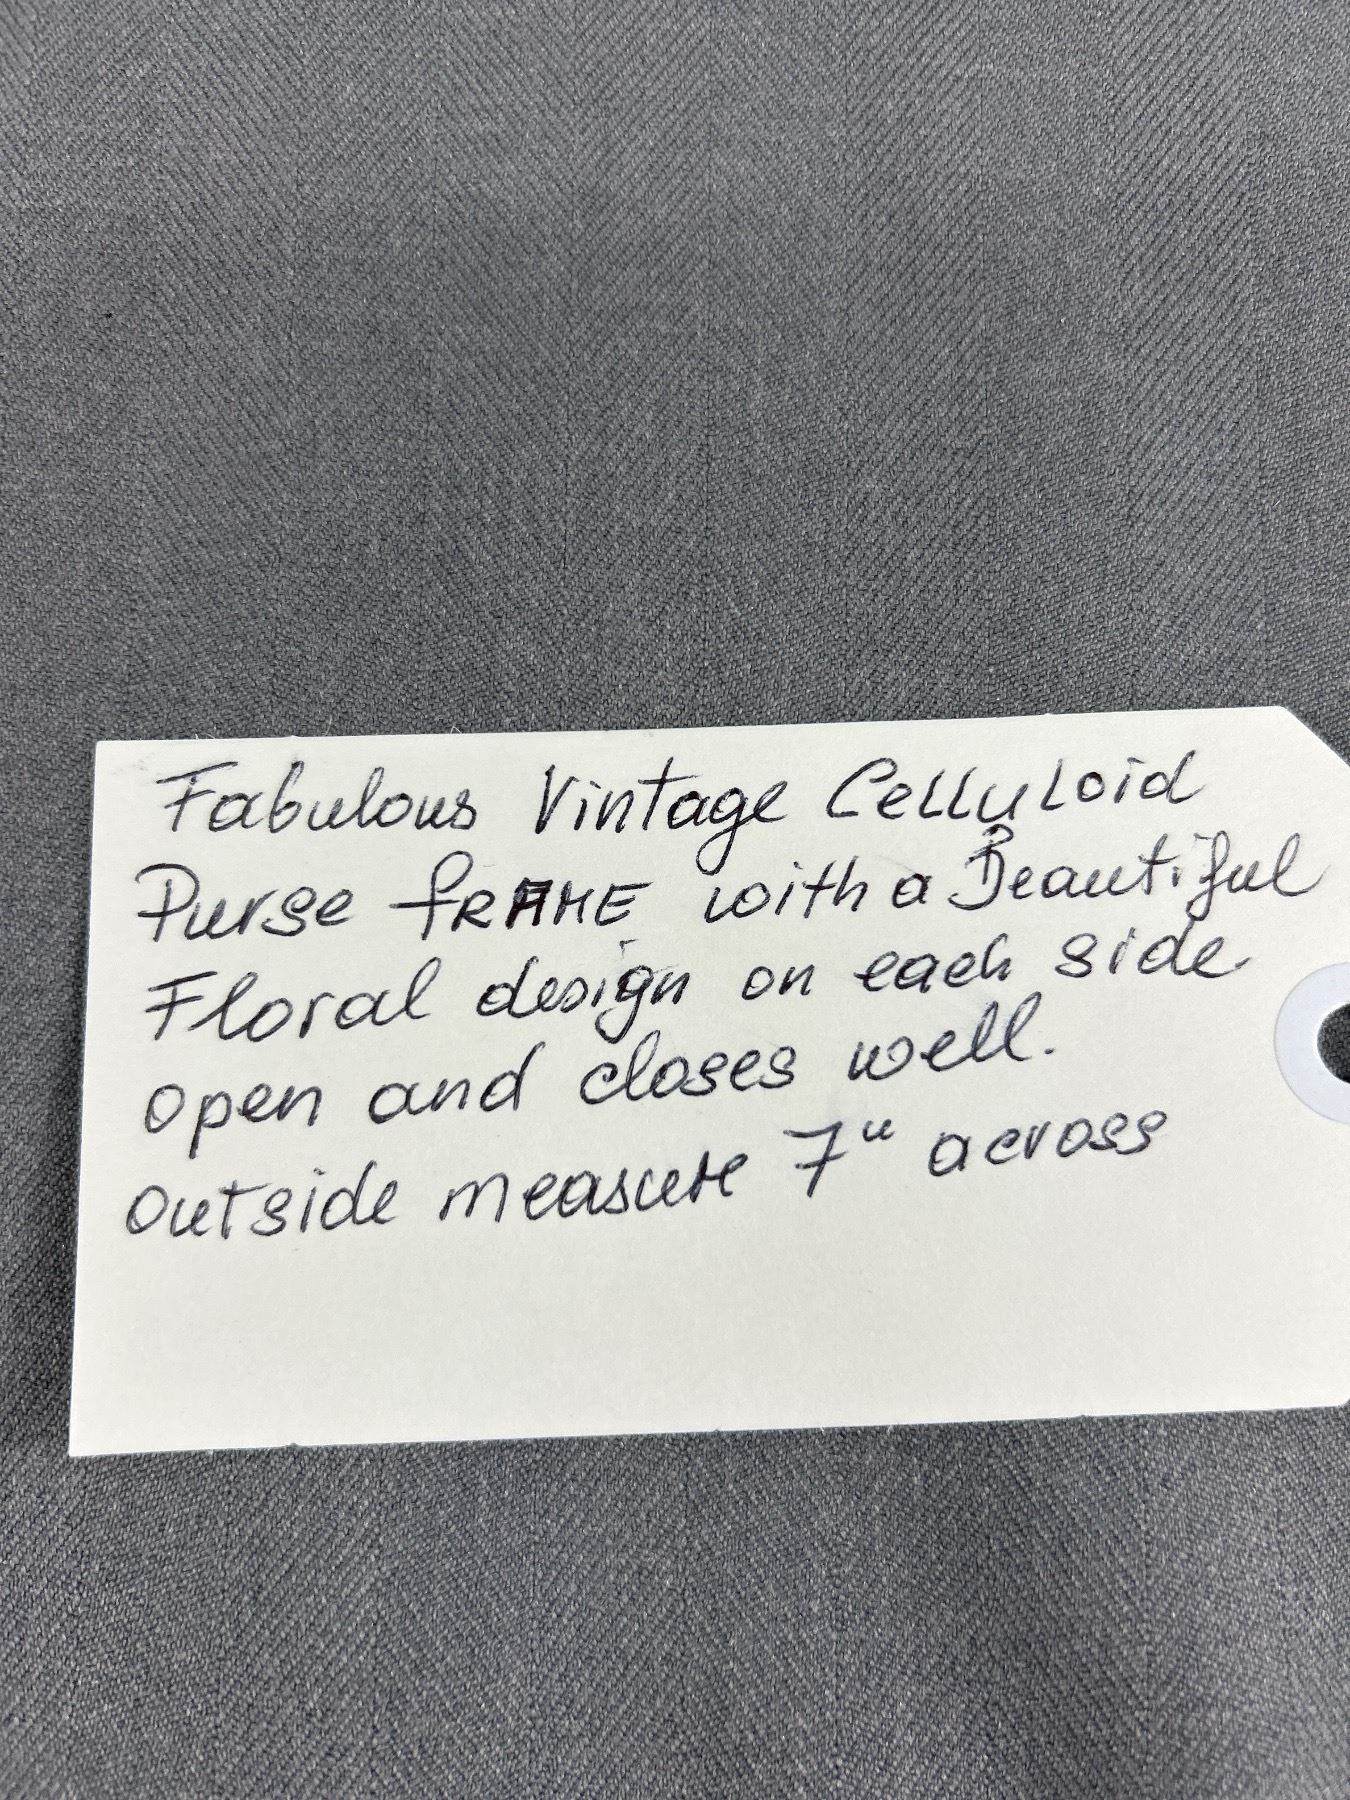 Fabulous Vintage Celluloid
Purse fRAME with a Beautiful
Floral design on each side
open and closes well.
outside measure 7" across